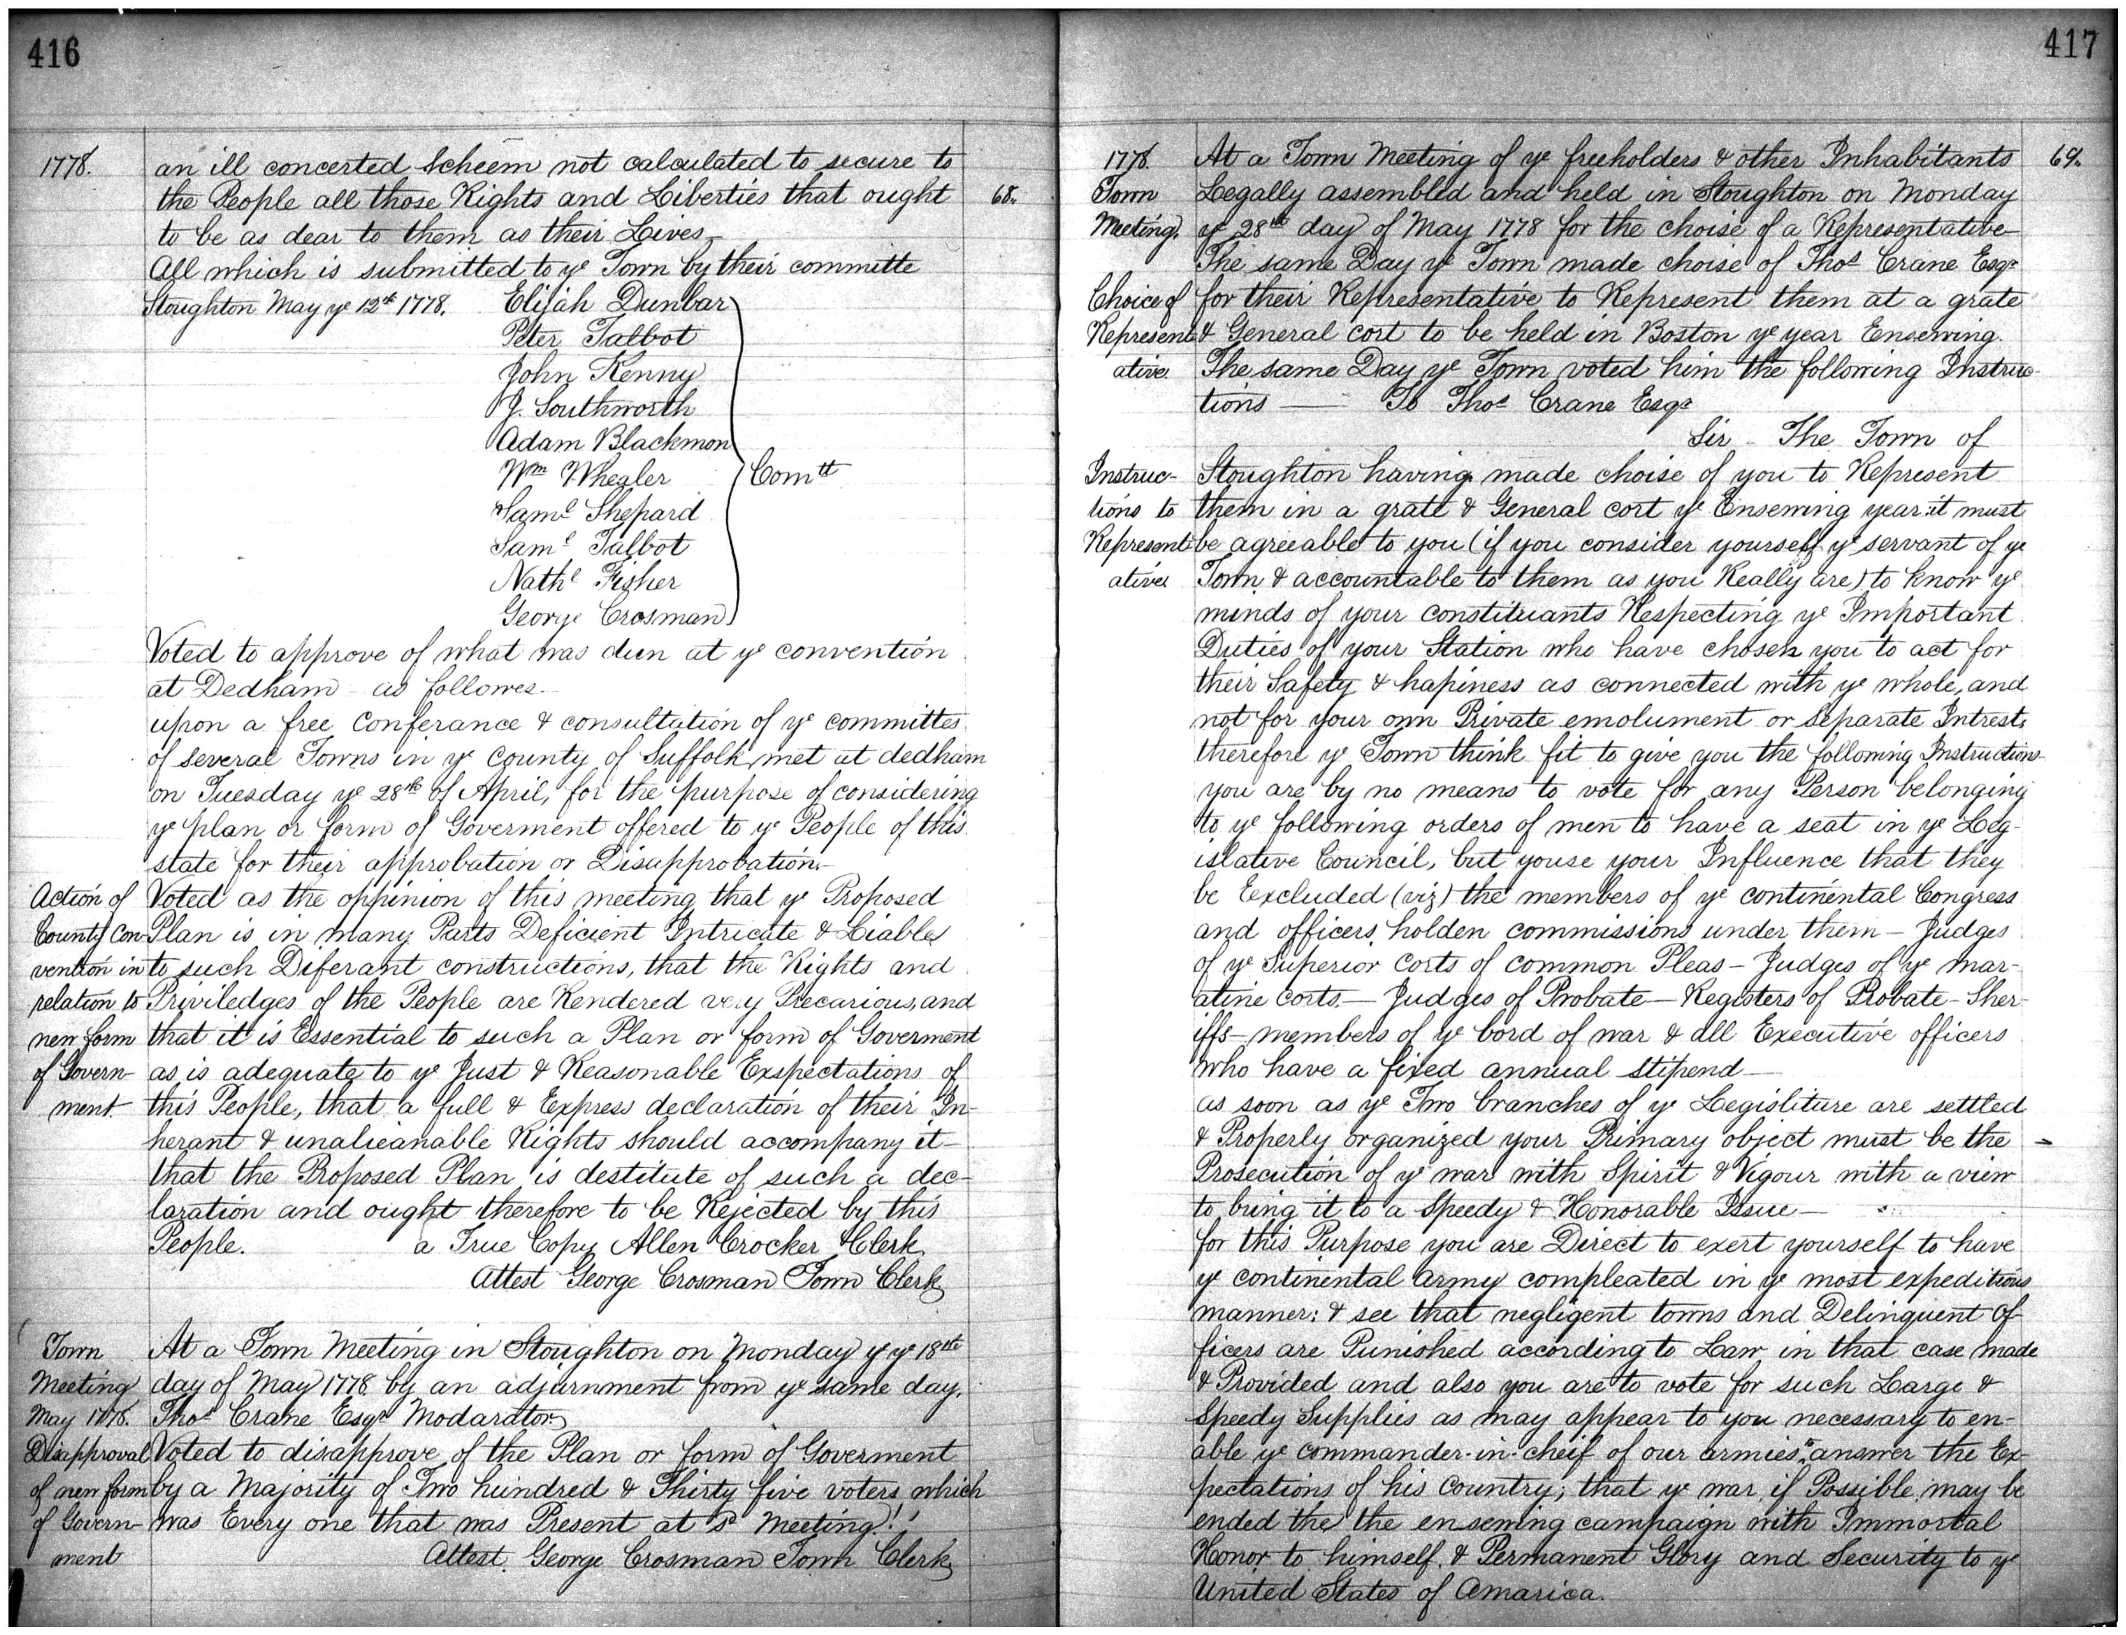 416
1778.
an ill concerted Scheem not calculated to secure to
the People all those Rights and Liberties that ought
68.
to be as dear to them as their Lives
All which is submitted to ye Town by their committe
Stoughton May ye 12th 1778.
Elijah Dunbar
Peter Talbot
John Kenny
J. Southworth
Adam Blackmon
Wm Whealer
Saml Shepard
Saml Talbot
Nathl Fisher
George Crosman
Comtt
Voted to approve of what was dun at ye convention
at Dedham as followes
upon a free Conferance & consultation of ye committes
of several Towns in ye County of Suffolk met at dedham
on Tuesday ye 28th of April, for the purpose of considering
ye plan or form of Goverment offered to ye People of this
state for their approbation or Disapprobation.
Action of
County Con-
vention in
relation to
new form
of Govern-
ment.
Voted as the oppinion of this meeting that ye Proposed
Plan is in many Parts Deficient Intricate & Liable
to such Diferant constructions, that the Rights and
Priviledges of the People are Rendered very Precarious, and
that it is Essential to such a Plan or form of Goverment
as is adequate to ye Just & Reasonable Exspectations of
this People, that a full & Express declaration of their In-
herant & unalieanable Rights should accompany it
that the Proposed Plan is destitute of such a dec-
laration and ought therefore to be Rejected by this
People. a True Copy Allen Crocker Clerk.
Attest George Crosman Town Clerk
Town
Meeting
May 1778.
Disapproval
of new form
of Govern-
ment
At a Town Meeting in Stoughton on Monday ye ye 18th
day of May 1778 by an adjurnment from ye same day.
Thos Crane Esqr Modarator
Voted to disapprove of the Plan or form of Goverment
by a Majority of Two hundred & Thirty five voters which
was Every one that was Present at sd Meeting!!
Attest. George Crosman Town Clerk
417
1778.
Town
Meeting.
69.
At a Town Meeting of ye freeholders & other Inhabitants
Legally assembled and held in Stoughton on Monday
ye 28th day of May 1778 for the choise of a Representative
The same Day ye Town made choise of Thos Crane Esqr
Choice of
Represent-
ative.
for their Representative to Represent them at a grate
& General cort to be held in Boston ye year Ensewing.
The same Day ye Town voted him the following Instruc-
tions — To Thos Crane Esqr
Sir - The Town of
Instruc-
tions to
Represent-
ative
Stoughton having made choise of you to Represent
them in a grate & General cort ye Ensewing year it must
be agreeable to you (if you consider yourself ye servant of ye
Town & accountable to them as you Really are) to know ye
minds of your constituants Respecting ye Important
Duties of your Station who have chosen you to act for
their Safety & hapiness as connected with ye whole, and
not for your own Private emolument or separate Intrest,
therefore ye Town think fit to give you the following Instructions
you are by no means to vote for any Person belonging
to ye following orders of men to have a seat in ye Leg-
islative Council, but youse your Influence that they
be Eexcluded (viz) the members of ye continental Congress
and officers holden commissions under them - Judges
of ye Superior Corts of common Pleas - Judges of ye mar-
atine corts. - Judges of Probate - Registers of Probate - Sher-
iffs - members of ye bord of war & all Executive officers
who have a fixed annual stipend -
as soon as ye Two branches of ye Legisliture are settled
& Properly organized your Primary object must be the
Prosecution of ye war with Spirit & Vigour with a view
to bring it to a Speedy & Honorable Issue -
for this Purpose you are Direct to exert yourself to have
ye continental army compleated in ye most expeditious
manner: & see that negligent towns and Delinquent of-
ficers are Punished according to Law in that case made
& Provided and also you are to vote for such Large &
Speedy Supplies as may appear to you necessary to en-
able ye commander-in-cheif of our armies to answer the Ex-
pectations of his country; that ye war, if Possible, may be
ended the the ensewing campaign with Immortal
Honor to himself & Permanent Glory and Security to ye
United States of Amarica.